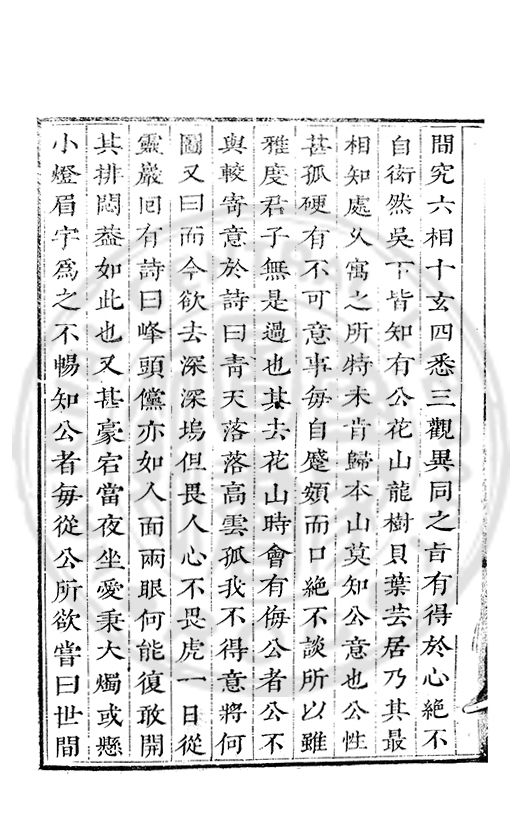 間究六相十玄四悉三觀異同之旨有得於心絶不
自衒然吳下皆知有公花山龍樹貝葉芸居乃其最
相知處久寓之所特未肯歸本山莫知公意也公性
甚孤硬有不可意事每自蹙頞而口絶不談所以雖
雅度君子無是過也其去花山時會有侮公者公不
與較寄意於詩曰靑天落落高雲孤我不得意將何
圖又曰而今欲去深深塢但畏人心不畏虎一日從
靈巖回有詩曰峰頭儻亦如人面兩眼何能復敢開
其排悶葢如此也又甚豪宕當夜坐愛秉大燭或懸
小燈眉宇爲之不暢知公者每從公所欲嘗曰世間